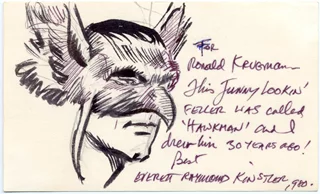 FOR
RONALD KRUEMAN—
THIS FUNNY LOOKIN'
FELLER WAS CALLED
'HAWKMAN' AND I
DREW HIM 30 YEARS AGO!
BEST
EVERETT RAYMOND KINSTLER, 980.